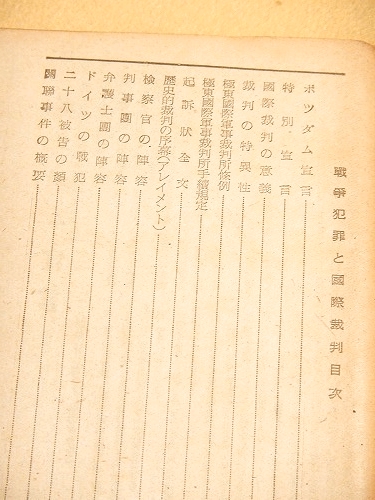 戰爭犯罪と國際裁判目次
ポツダム宣言
特別宣言
國際裁判の意義
裁判の特異性
極東國際軍事裁判所條例
極東國際軍事裁判所手續規定
起訴狀全文
歴史的裁判の序幕(アレイメント)
檢察官の陣容
判事團の陣容
弁護士團の陣容
ドイツの戰犯
二十八被告の顏
關聯事件の概要